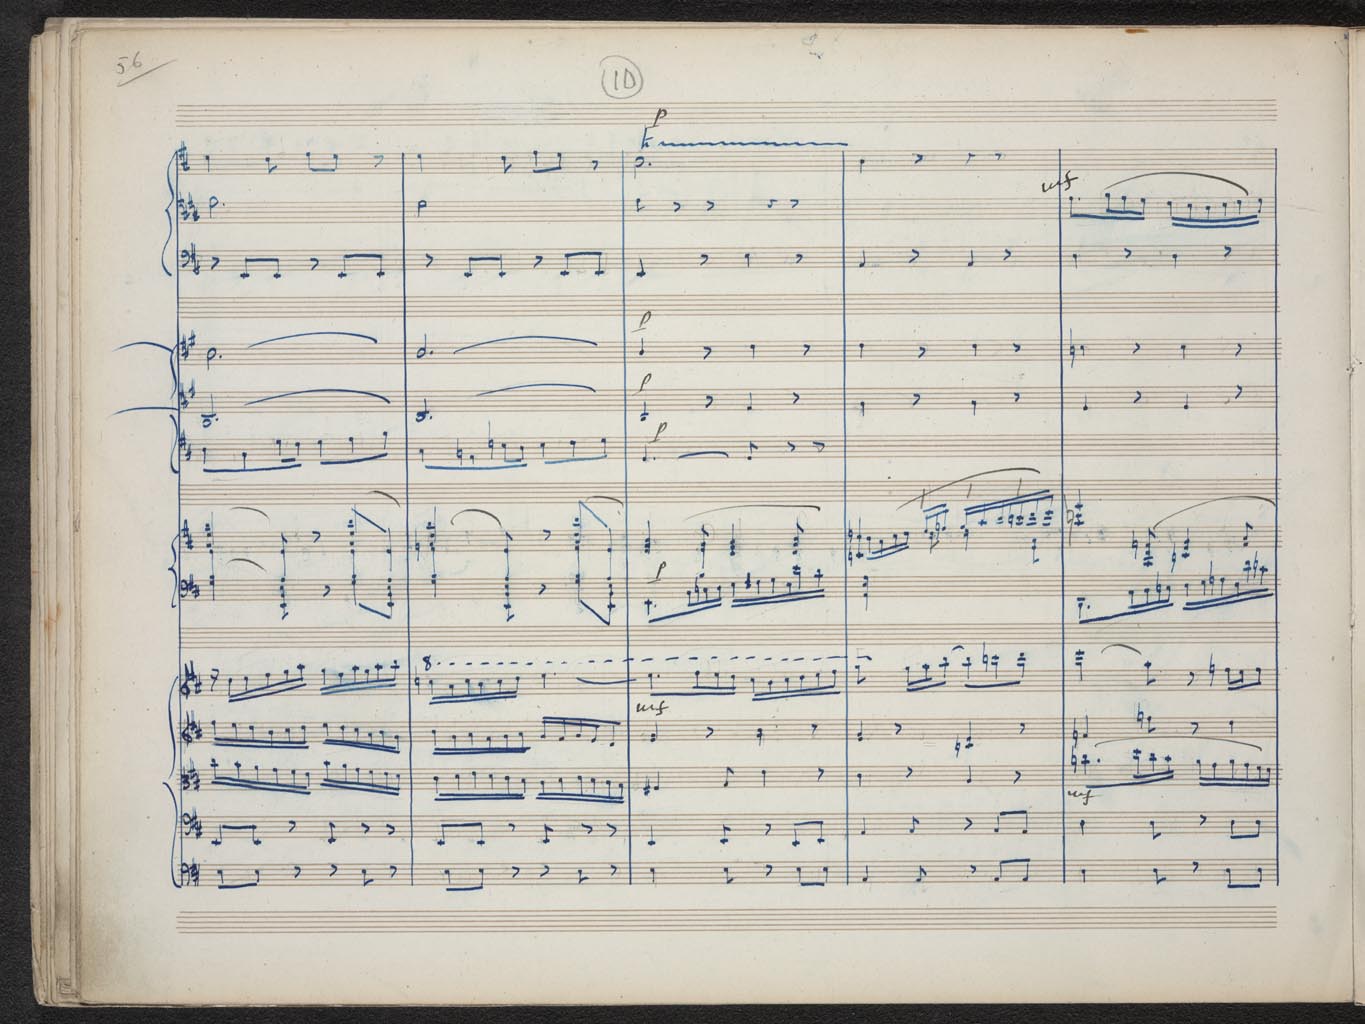 56
10
p
mf
p
p
p
p
8
mf
mf